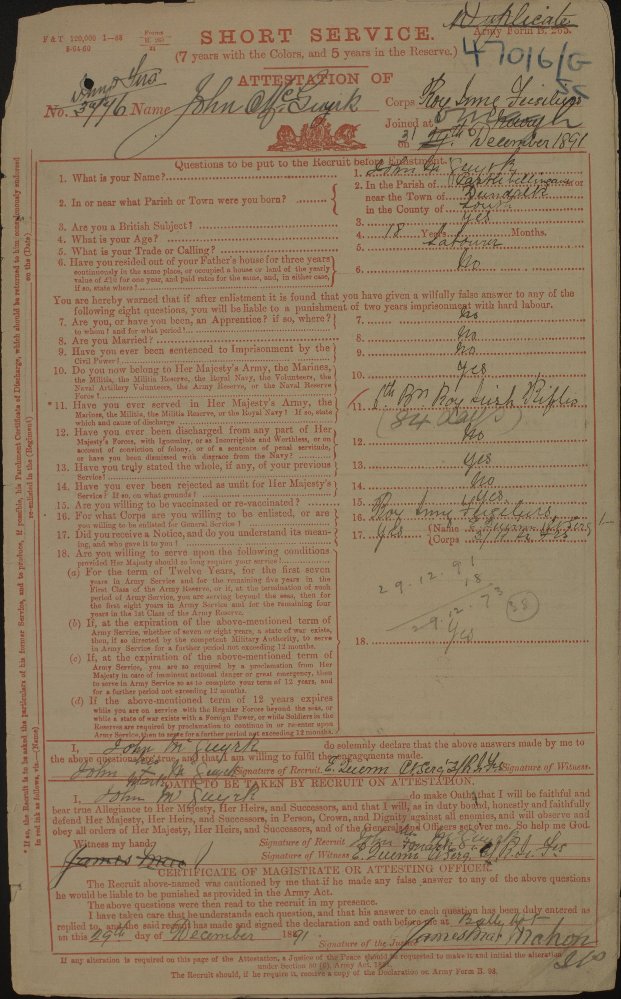 Duplicate
F & T 120,000 1—88 Forms B. 265 SHORT SERVICE. Army Form B. 265.
(7 years with the Colors, and 5 years in the Reserve.)
47016/G
ATTESTATION OF
No. 3976 Name John McGuyrk Corps Roy Innis
Joined at
on 31 December 1891
Questions to be put to the Recruit before Enlistment.
1. What is your Name? 1. John McGuyrk
2. In or near what Parish or Town were you born? 2. In the Parish of or
near the Town of Dundalk
in the County of Louth
3. Are you a British Subject? 3. Yes
4. What is your Age? 4. 18 Years Months.
5. What is your Trade or Calling? 5. Labourer
6. Have you resided out of your Father's house for three years
continuously in the same place, or occupied a house or land of the yearly
value of £10 for one year, and paid rates for the same, and, in either case,
if so, state where? 6. No
You are hereby warned that if after enlistment it is found that you have given a wilfully false answer to any of the
following eight questions, you will be liable to a punishment of two years imprisonment with hard labour.
7. Are you, or have you been, an Apprentice? if so, where?
to whom? and for what period? 7. No
8. Are you Married? 8. No
9. Have you ever been sentenced to Imprisonment by the
Civil Power? 9. No
10. Do you now belong to Her Majesty's Army, the Marines,
the Militia, the Militia Reserve, the Royal Navy, the Volunteers, the
Naval Artillery Volunteers, the Army Reserve, or the Naval Reserve
Force? 10. Yes
*11. Have you ever served in Her Majesty's Army, the
Marines, the Militia, the Militia Reserve, or the Royal Navy? If so, state
which and cause of discharge 11. Bn Roy Irish Rifles
(84 days)
12. Have you ever been discharged from any part of Her
Majesty's Forces, with Ignominy, or as Incorrigible and Worthless, or on
account of conviction of felony, or of a sentence of penal servitude,
or have you been dismissed with disgrace from the Navy? 12. No
13. Have you truly stated the whole, if any, of your previous
Service? 13. Yes
14. Have you ever been rejected as unfit for Her Majesty's
Service? If so, on what grounds? 14. No
15. Are you willing to be vaccinated or re-vaccinated? 15. Yes
16. For what Corps are you willing to be enlisted, or are
you willing to be enlisted for General Service? 16. Roy Inny Fusiliers
17. Did you receive a Notice, and do you understand its mean-
ing, and who gave it to you? 17. Yes Name
Corps
18. Are you willing to serve upon the following conditions
provided Her Majesty should so long require your service?
(a) For the term of Twelve Years, for the first seven
years in Army Service and for the remaining five years in the
First Class of the Army Reserve, or if, at the termination of such
period of Army Service, you are serving beyond the seas, then for
the first eight years in Army Service and for the remaining four
years in the 1st Class of the Army Reserve.
29.12.91
18
29.12.73 (38)
(b) If, at the expiration of the above-mentioned term of
Army Service, whether of seven or eight years, a state of war exists,
then, if so directed by the competent Military Authority, to serve
in Army Service for a further period not exceeding 12 months.
18. Yes
(c) If, at the expiration of the above-mentioned term of
Army Service, you are so required by a proclamation from Her
Majesty in case of imminent national danger or great emergency, then
to serve in Army Service so as to complete your term of 12 years, and
for a further period not exceeding 12 months.
(d) If the above-mentioned term of 12 years expires
while you are on service with the Regular Forces beyond the seas, or
while a state of war exists with a Foreign Power, or while Soldiers in the
Reserves are required by proclamation to continue in or re-enter upon
Army Service, then to serve for a further period not exceeding 12 months.
I, John McGuyrk do solemnly declare that the above answers made by me to
the above questions are true, and that I am willing to fulfil the engagements made.
John McGuyrk Signature of Recruit. Signature of Witness.
OATH TO BE TAKEN BY RECRUIT ON ATTESTATION.
I, John McGuyrk do make Oath, that I will be faithful and
bear true Allegiance to Her Majesty, Her Heirs, and Successors, and that I will, as in duty bound, honestly and faithfully
defend Her Majesty, Her Heirs, and Successors, in Person, Crown, and Dignity against all enemies, and will observe and
obey all orders of Her Majesty, Her Heirs, and Successors, and of the Generals and Officers set over me. So help me God.
Witness my hand, Signature of Recruit
Signature of Witness
CERTIFICATE OF MAGISTRATE OR ATTESTING OFFICER.
The Recruit above-named was cautioned by me that if he made any false answer to any of the above questions
he would be liable to be punished as provided in the Army Act.
The above questions were then read to the recruit in my presence.
I have taken care that he understands each question, and that his answer to each question has been duly entered as
replied to, and the said recruit has made and signed the declaration and oath before me at
on this 29th day of December 1891
Signature of the Justice James Mac Mahon
If any alteration is required on this page of the Attestation, a Justice of the Peace should be requested to make it and initial the alteration
under Section 80 (6), Army Act, 1881.
The Recruit should, if he require it, receive a copy of the Declaration on Army Form B. 98.
* If so, the Recruit is to be asked the particulars of his former Service, and to produce, if possible, his Parchment Certificate of Discharge, which should be returned to him, conspicuously endorsed
in red ink as follows, viz.—(Name) re-enlisted in the (Regiment) on the (Date)